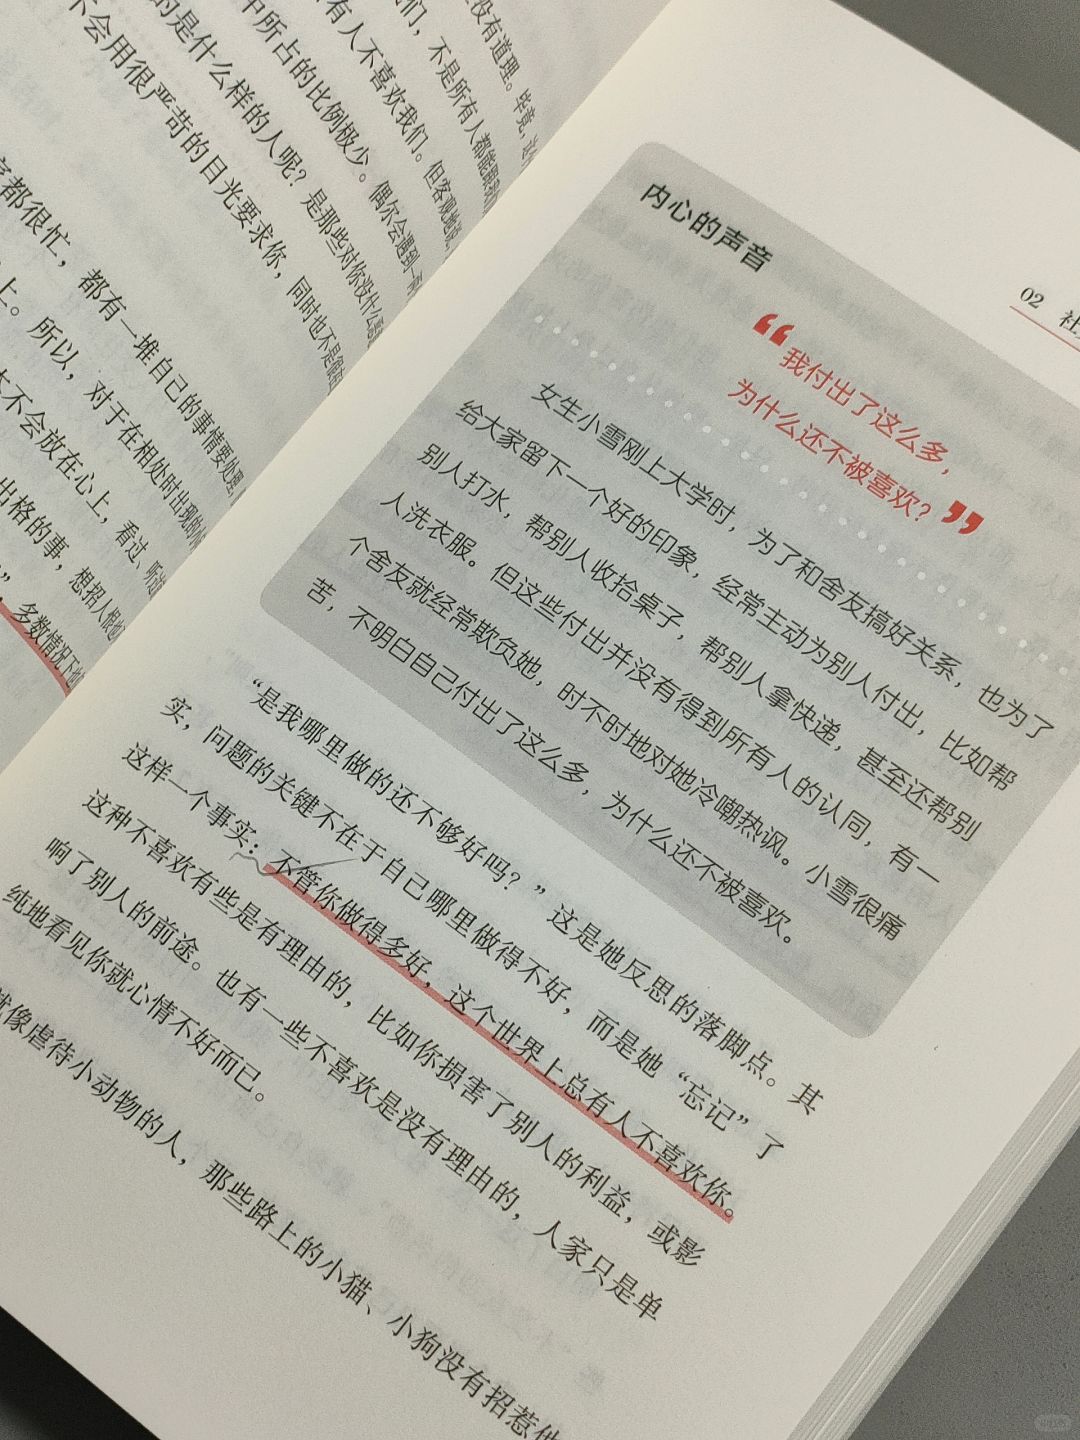 没有道理。毕竟，
们，不是所有人都能
有人不喜欢我们。但客观地说，
中所占的比例极少。偶尔会遇到一
的是什么样的人呢？是那些对你没什么
不会用很严苛的目光要求你，同时也不是
都很忙，都有一堆自己的事情要处理
上。所以，对于在相处时出现的
不会放在心上，看过、听过
出格的事，想招人恨也
”，多数情况下也
02 社
内心的声音
“我付出了这么多，
为什么还不被喜欢？”
女生小雪刚上大学时，为了和舍友搞好关系，也为了
给大家留下一个好的印象，经常主动为别人付出，比如帮
别人打水，帮别人收拾桌子，帮别人拿快递，甚至还帮别
人洗衣服。但这些付出并没有得到所有人的认同，有一
个舍友就经常欺负她，时不时地对她冷嘲热讽。小雪很痛
苦，不明白自己付出了这么多，为什么还不被喜欢。
“是我哪里做的还不够好吗？”这是她反思的落脚点。其
实，问题的关键不在于自己哪里做得不好，而是她“忘记”了
这样一个事实：不管你做得多好，这个世界上总有人不喜欢你。
这种不喜欢有些是有理由的，比如你损害了别人的利益，或影
响了别人的前途。也有一些不喜欢是没有理由的，人家只是单
纯地看见你就心情不好而已。
就像虐待小动物的人，那些路上的小猫、小狗没有招惹他